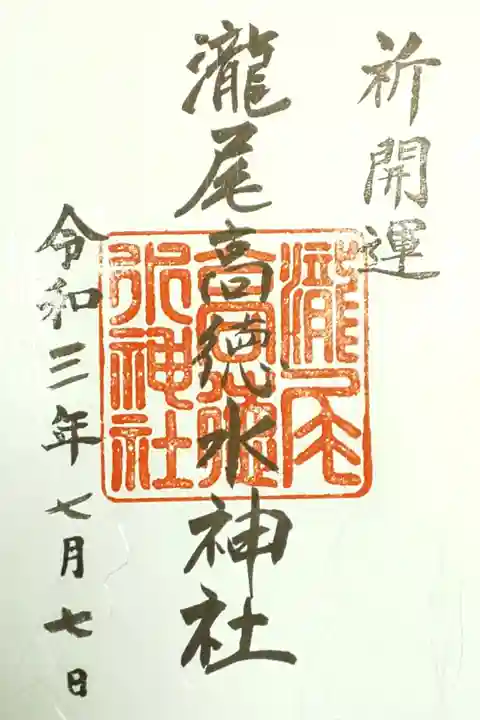 祈開運
瀧尾高徳水神社
瀧尾高徳水神社
令和三年七月七日